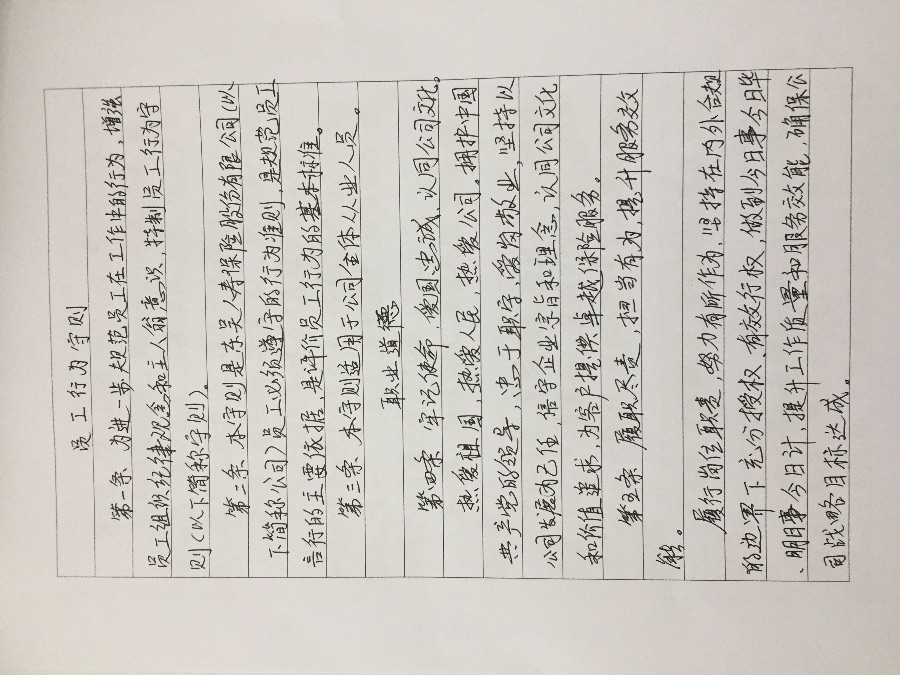 员工行为守则
第一条 为进一步规范员工在工作中的行为,增强
员工组织纪律观念和主人翁意识,特制员工行为守
则(以下简称守则)。
第二条 本守则是东吴人寿保险股份有限公司(以
下简称公司)员工必须遵守的行为准则,是规范员工
言行的主要依据,是评价员工行为的基本标准。
第三条 本守则适用于公司全体从业人员。
职业道德
第四条 牢记使命,爱国忠诚,认同公司文化。
热爱祖国,热爱人民,热爱公司。拥护中国
共产党的领导,忠于职守,爱岗敬业,坚持以
公司发展为己任,信守企业宗旨和理念,认同公司文化
和价值追求,为客户提供卓越保险服务。
第五条 履职尽责,担当有为,提升服务效
能。
履行岗位职责,努力有所作为,坚持在内外合规
的边界下充分授权、有效行权,做到今日事今日毕
、明日事今日计,提升工作质量和服务效能,确保公
司战略目标达成。